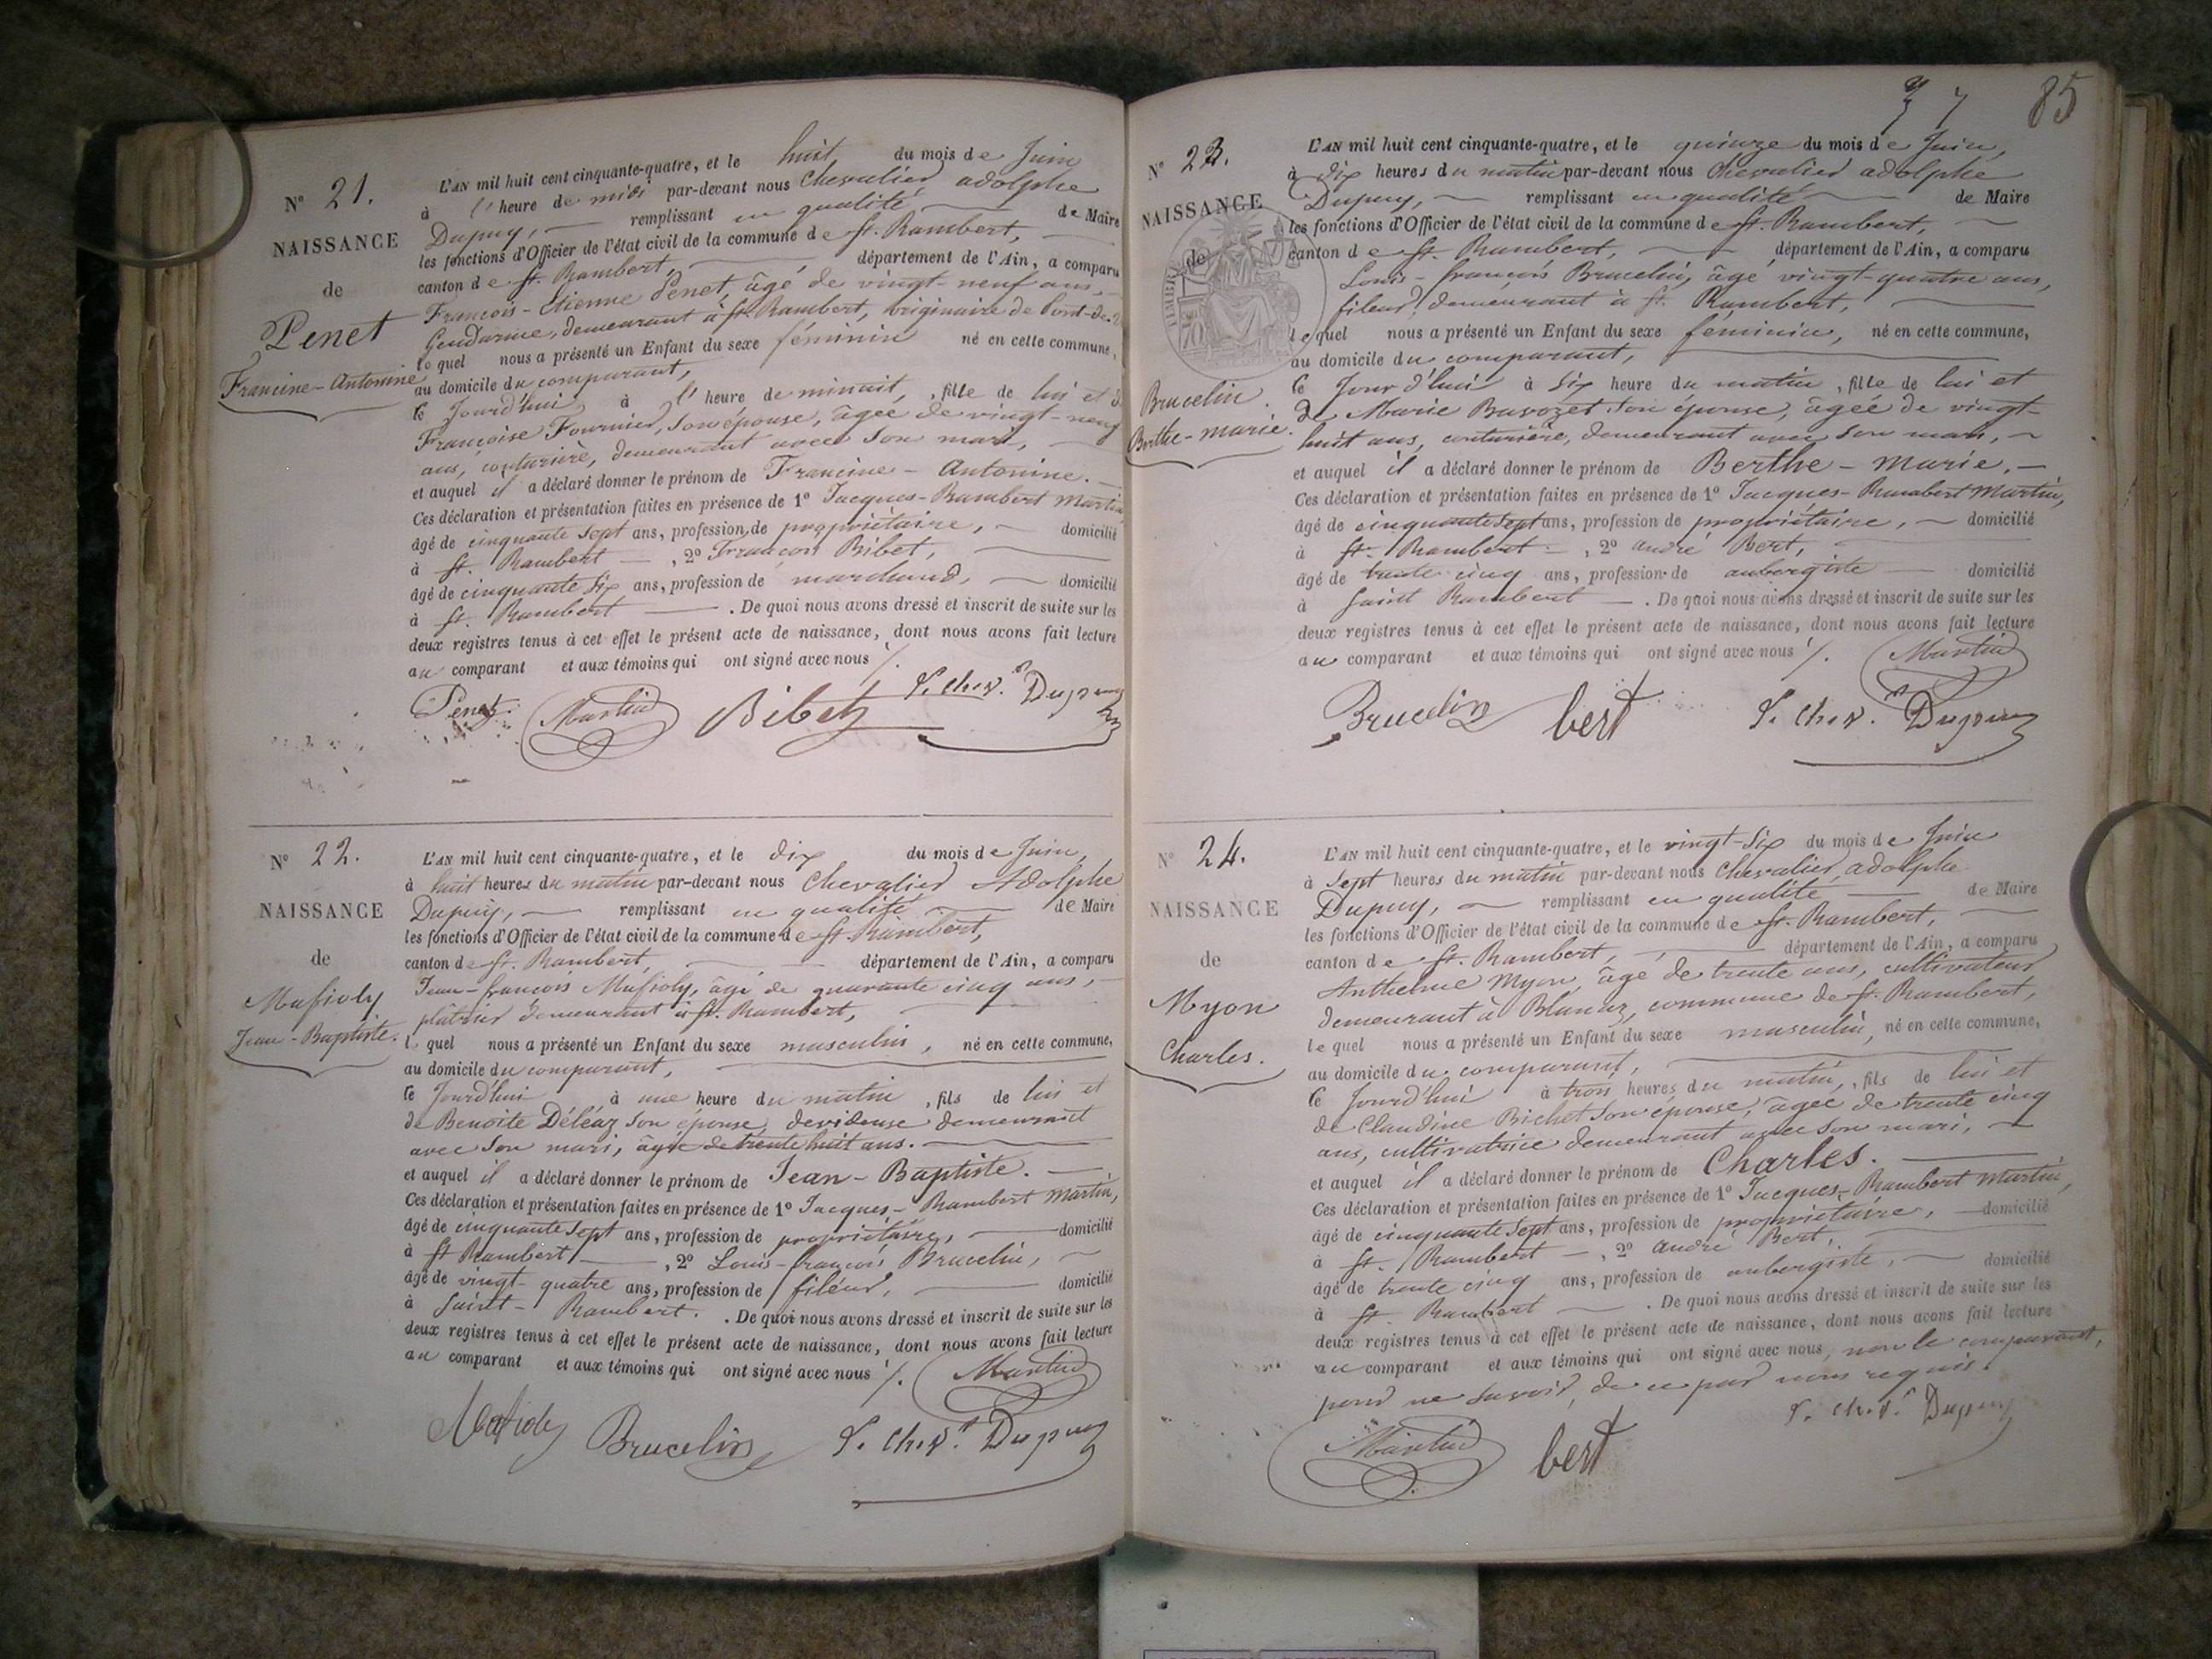 N° 21.
NAISSANCE
de
Penet
Francine-Antonine
L'AN mil huit cent cinquante-quatre, et le huit du mois de Juin
à l'heure de midi par-devant nous Chevalier adolphe
Dupuy, remplissant en qualité de Maire
les fonctions d'Officier de l'état civil de la commune de St. Rambert,
canton de St. Rambert, département de l'Ain, a comparu
François-Etienne Penet âgé de vingt-neuf ans,
Gendarme, demeurant à St. Rambert, originaire de Pont-de-
lequel nous a présenté un Enfant du sexe féminin né en cette commune,
au domicile du comparant,
Ce Jourd'hui à l'heure de minuit, fille de lui et de
Françoise Fournier, son épouse, âgée de vingt-neuf
ans, couturière, demeurant avec son mari,
et auquel il a déclaré donner le prénom de Francine-Antonine.
Ces déclaration et présentation faites en présence de 1° Jacques-Rambert Martin
âgé de cinquante sept ans, profession de propriétaire, domicilié
à St. Rambert, 2° François Bibet,
âgé de cinquante six ans, profession de marchand, domicilié
à St. Rambert. De quoi nous avons dressé et inscrit de suite sur les
deux registres tenus à cet effet le présent acte de naissance, dont nous avons fait lecture
au comparant et aux témoins qui ont signé avec nous ./.
Penet Martin Bibet S. Cher. Dupuy
N° 22.
NAISSANCE
de
Massioly
Jean-Baptiste.
L'AN mil huit cent cinquante-quatre, et le dix du mois de Juin,
à huit heures du matin par-devant nous Chevalier Adolphe
Dupuy, remplissant en qualité de Maire
les fonctions d'Officier de l'état civil de la commune de St. Rambert,
canton de St. Rambert, département de l'Ain, a comparu
Jean-François Massioly, âgé de quarante cinq ans,
plâtrier demeurant à St. Rambert,
lequel nous a présenté un Enfant du sexe masculin, né en cette commune,
au domicile du comparant,
Ce Jourd'hui à une heure du matin, fils de lui et
de Benoite Déléaz son épouse, devideuse demeurant
avec son mari, âgée de trente huit ans.
et auquel il a déclaré donner le prénom de Jean-Baptiste.
Ces déclaration et présentation faites en présence de 1° Jacques-Rambert Martin,
âgé de cinquante sept ans, profession de propriétaire, domicilié
à St Rambert, 2° Louis-François Brucelin,
âgé de vingt-quatre ans, profession de fileur, domicilié
à Saint-Rambert. De quoi nous avons dressé et inscrit de suite sur les
deux registres tenus à cet effet le présent acte de naissance, dont nous avons fait lecture
au comparant et aux témoins qui ont signé avec nous ./. Martin
Brucelin S. Cher. Dupuy
7 85
N° 23.
NAISSANCE
de
Brucelin
Berthe-Marie.
L'AN mil huit cent cinquante-quatre, et le quinze du mois de Juin,
à dix heures du matin par-devant nous Chevalier adolphe
Dupuy, remplissant en qualité de Maire
les fonctions d'Officier de l'état civil de la commune de St. Rambert,
canton de St. Rambert, département de l'Ain, a comparu
Louis-François Brucelin, âgé vingt-quatre ans,
fileur, demeurant à St. Rambert,
lequel nous a présenté un Enfant du sexe féminin, né en cette commune,
au domicile du comparant,
Ce Jour d'hui à six heure du matin, fille de lui et
de Marie Bavozet son épouse, âgée de vingt-
huit ans, couturière, demeurant avec son mari,
et auquel il a déclaré donner le prénom de Berthe-Marie.
Ces déclaration et présentation faites en présence de 1° Jacques-Rambert Martin,
âgé de cinquante sept ans, profession de propriétaire, domicilié
à St. Rambert, 2° André Bert,
âgé de trente cinq ans, profession de aubergiste domicilié
à Saint Rambert. De quoi nous avons dressé et inscrit de suite sur les
deux registres tenus à cet effet le présent acte de naissance, dont nous avons fait lecture
au comparant et aux témoins qui ont signé avec nous ./. Martin
Brucelin bert S. Cher. Dupuy
N° 24.
NAISSANCE
de
Myon
Charles.
L'AN mil huit cent cinquante-quatre, et le vingt-six du mois de Juin
à sept heures du matin par-devant nous Chevalier adolphe
Dupuy, remplissant en qualité de Maire
les fonctions d'Officier de l'état civil de la commune de St. Rambert,
canton de St. Rambert, département de l'Ain, a comparu
Anthelme Myon, âgé de trente ans, cultivateur
demeurant à Blanaz, commune de St. Rambert,
lequel nous a présenté un Enfant du sexe masculin, né en cette commune,
au domicile du comparant,
Ce Jourd'hui à trois heures du matin, fils de lui et
de Claudine Bichet son épouse, âgée de trente cinq
ans, cultivatrice demeurant avec son mari,
et auquel il a déclaré donner le prénom de Charles.
Ces déclaration et présentation faites en présence de 1° Jacques-Rambert Martin,
âgé de cinquante sept ans, profession de propriétaire, domicilié
à St. Rambert, 2° André Bert,
âgé de trente cinq ans, profession de aubergiste, domicilié
à St. Rambert. De quoi nous avons dressé et inscrit de suite sur les
deux registres tenus à cet effet le présent acte de naissance, dont nous avons fait lecture
au comparant et aux témoins qui ont signé avec nous, non le comparant,
pour ne savoir, de ce par nous requis.
Martin bert S. Cher. Dupuy